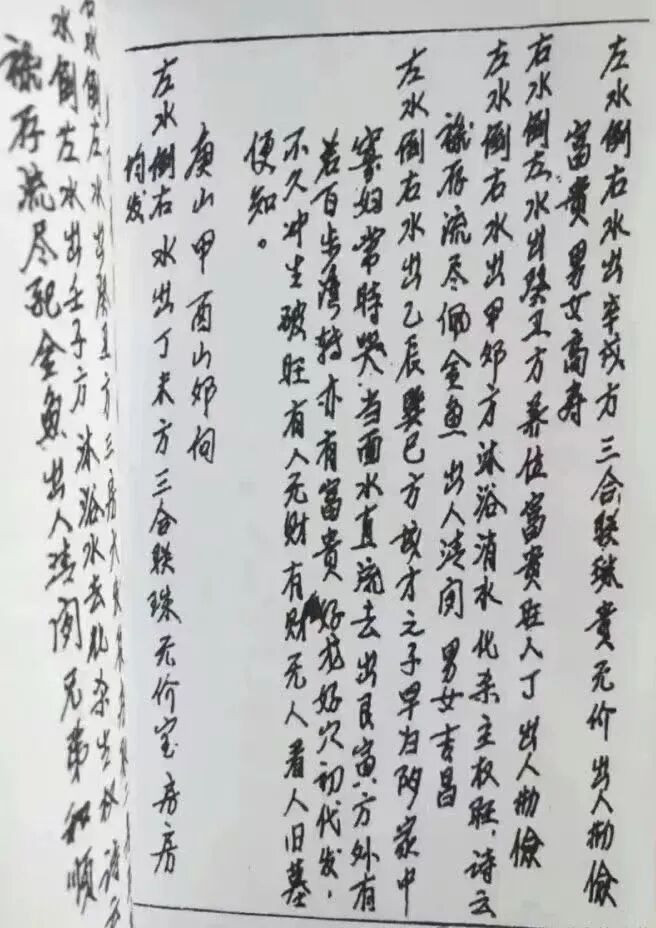 左水倒右水出辛戌方三合联珠贵无价出人勤俭
富贵男女高寿
右水倒左水出癸丑方养位富贵旺人丁出人勤俭
左水倒右水出甲卯方沐浴消水化杀主权旺，诗云
禄存流尽佩金鱼出人清闲男女吉昌
左水倒右水出乙辰巽巳方 才之子早为 家中
寡妇常时哭当面水直流去出艮寅方外有
若百步湾转亦有富贵好龙好穴初代发，
不久冲生破旺有人无财有财无人看人旧墓
便知。
庚山甲 酉山卯向
左水倒右水出丁未方三合联珠无价宝房房
均发
右水倒左水出癸丑方三房大
水倒左水出壬子方沐浴水去化杀生权诗云
禄存流尽配金鱼出人清闲兄弟和顺